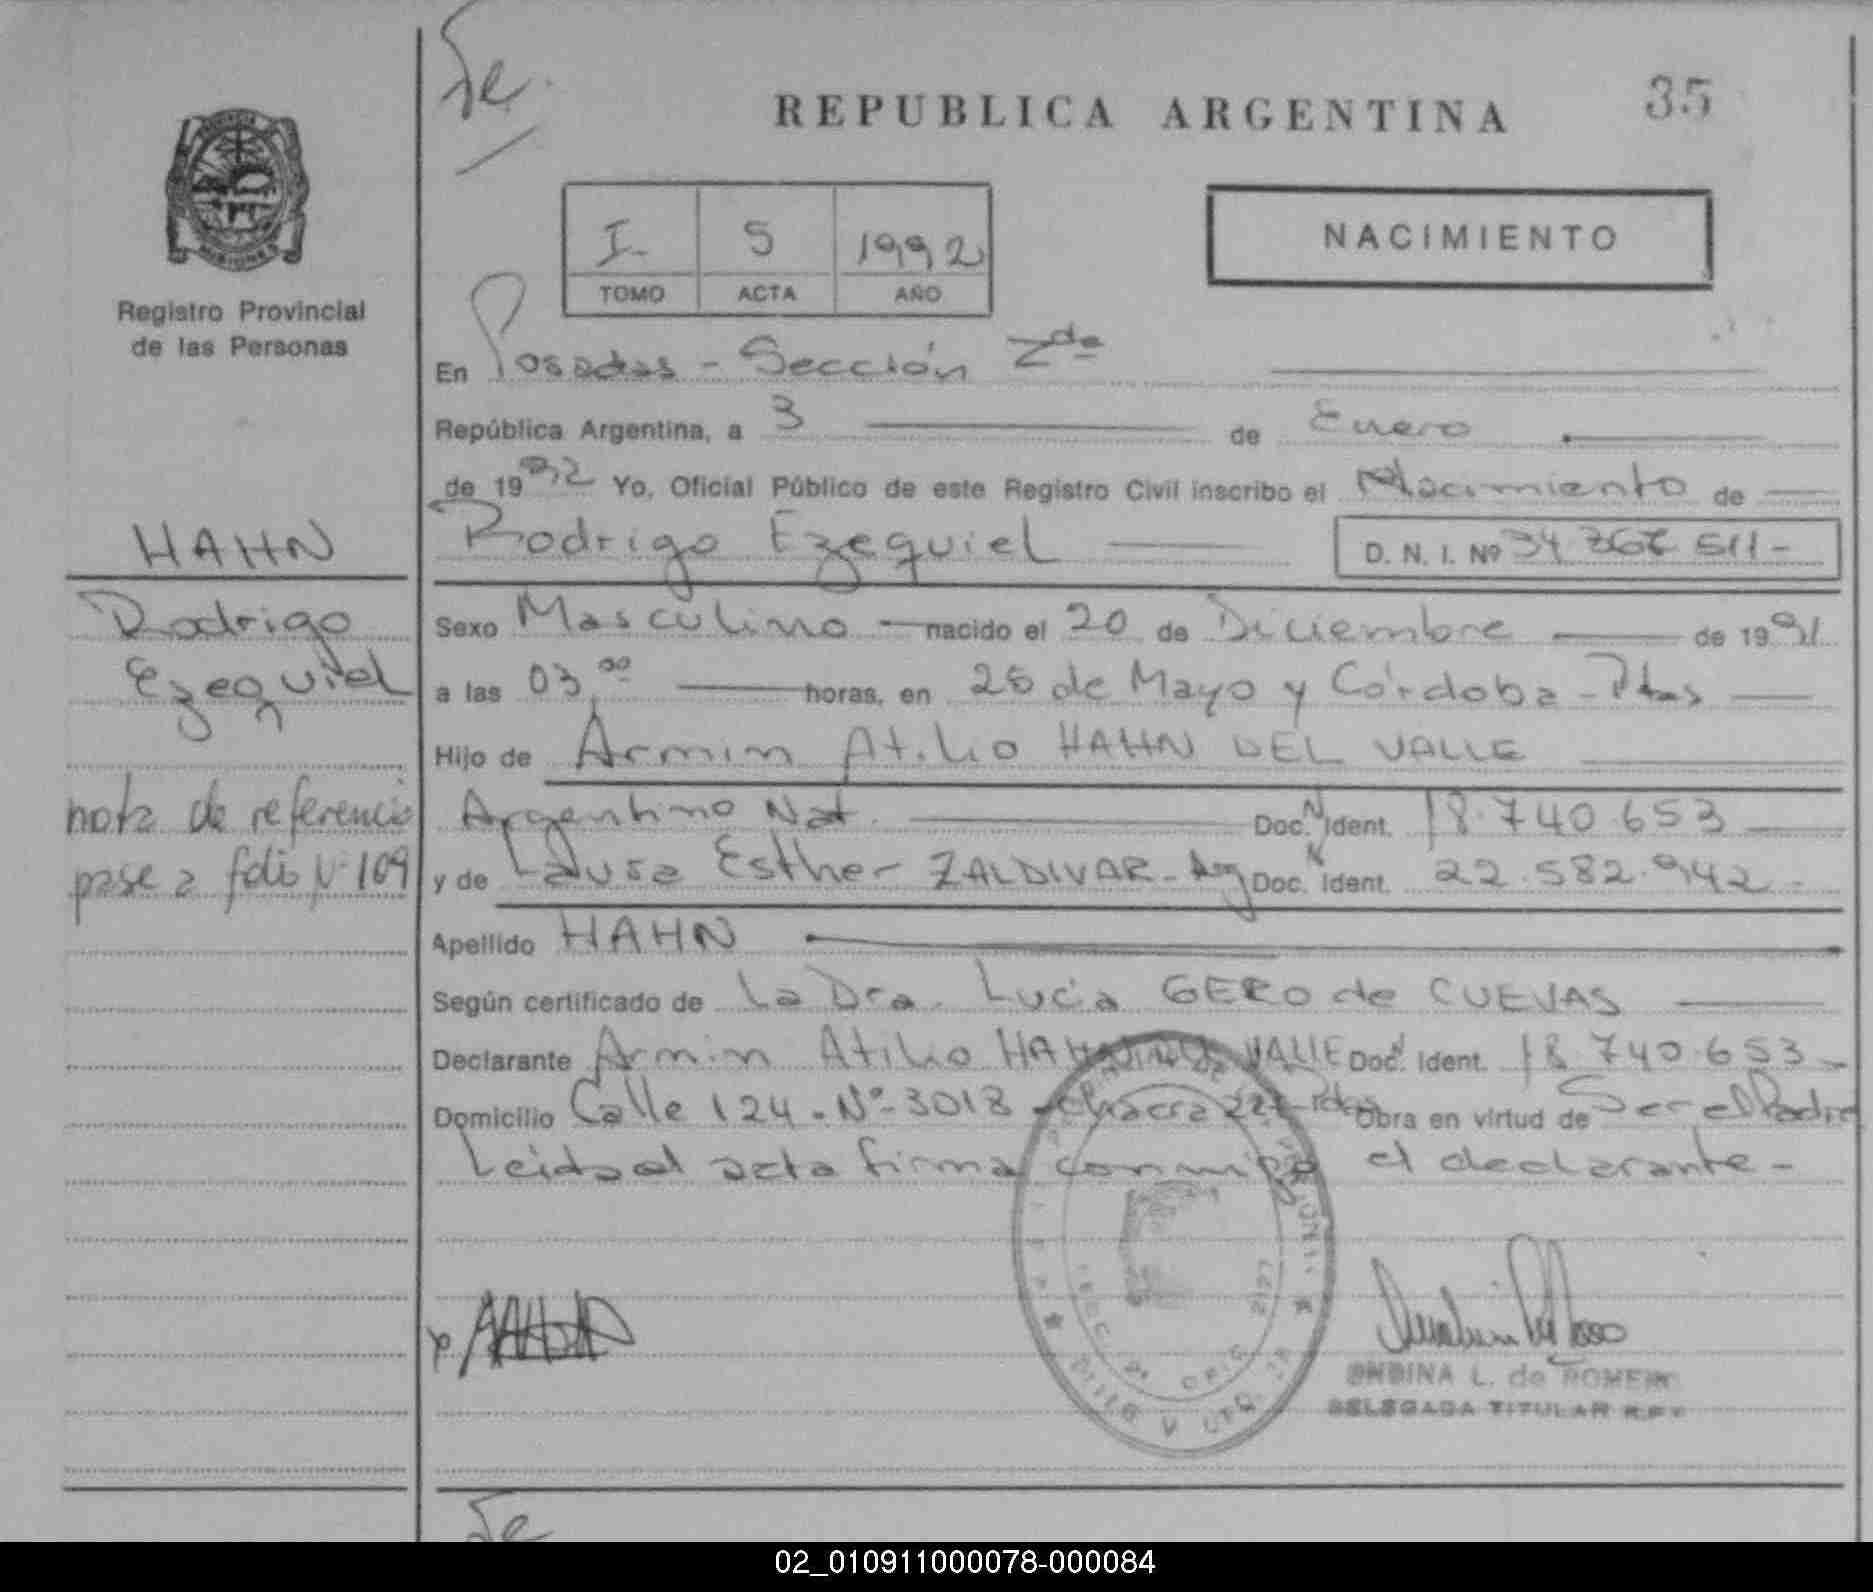 REPUBLICA ARGENTINA
35
I
5
1992
TOMO
ACTA
AÑO
NACIMIENTO
MISIONES
Registro Provincial
de las Personas
En Posadas - Sección 2da
República Argentina, a 3 de Enero
de 1992 Yo, Oficial Público de este Registro Civil inscribo el Nacimiento de
Rodrigo Ezequiel
D. N. I. Nº 34 511-
HAHN
Rodrigo
Ezequiel
Sexo Masculino nacido el 20 de Diciembre de 1991
a las 03,00 horas, en 25 de Mayo y Córdoba - Pdas
Hijo de Armin Atilio HAHN DEL VALLE
Argentino Nat. Doc. N Ident. 18.740.653
y de Esther ZALDIVAR - Arg Doc. N Ident. 22.582.942 -
nota de referencia
pase a folio Nº 109
Apellido HAHN
Según certificado de La Dra. Lucia GERO de CUEVAS
Declarante Armin Atilio HAHN VALLE Doc. N Ident. 18.740.653 -
Domicilio Calle 124 - Nº 3018 - Chacra Obra en virtud de Ser el Padre
Leida el acta firma conmigo el declarante -
L. de ROMERO
DELEGADA TITULAR
02_010911000078-000084